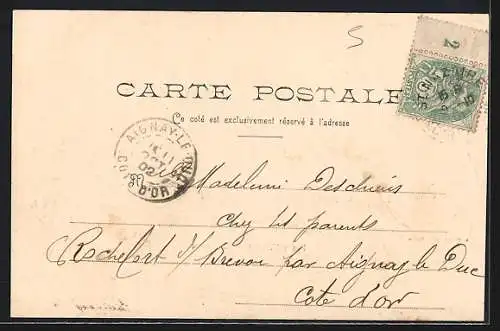 5
2
CARTE POSTALE
Ce coté est exclusivement réservé à l'adresse
AIGNAY-LE-DUC
11
OCT
02
COTE D'OR
Madeleine Deschenis
chez ses parents
Rochefort s/ Brevon par Aignay le Duc
Cote d'or